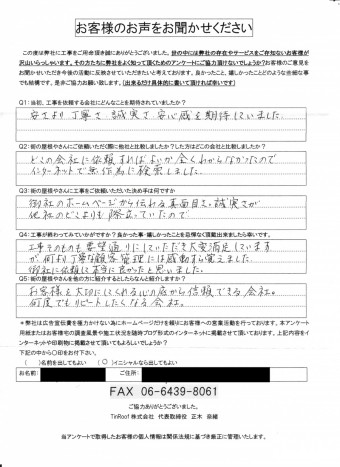 お客様のお声をお聞かせください
この度は弊社に工事をご用命頂き誠にありがとうございました。世の中には弊社の存在やサービスをご存知ないお客様が
沢山いらっしゃいます。その方たちに弊社をよく知って頂くためのアンケートにご協力頂けないでしょうか?お客様のご意見を
お聞かせいただき今後の活動に反映させていただきたいと考えております。良かったこと、嬉しかったことどのような些細な事
でも結構です。是非ご協力お願い致します。(出来るだけ具体的に書いて頂ければ幸いです)
Q1:当初、工事を依頼する会社にどんなことを期待されていましたか?
安さより丁寧さ、誠実さ、安心感を期待していました。
Q2:街の屋根やさんにご依頼いただく際に他社と比較しましたか?した方はどこの会社と比較しましたか?
どこの会社に依頼すればよいか全くわからなかったので
インターネットで無作為に検索しました。
Q3:街の屋根やさんに工事をご依頼いただいた決め手は何ですか
御社のホームページから伝わる真面目さ、誠実さが
他社のどこよりも際立っていたので
Q4:工事が終わってみていかがですか?良かった事・嬉しかったことを忌憚なく頂戴出来ましたら幸いです。
工事そのものも要望通りにしていただき大変満足しています
が、何より丁寧な顧客管理には感動すら覚えました。
御社に依頼して本当に良かったと思いました。
Q5:街の屋根やさんを他の方に紹介するとしたらなんと紹介しますか?
お客様を大切にしてくれる心の底から信頼できる会社。
何度でもリピートしたくなる会社。
*弊社は広告宣伝費を極力かけない為にホームページだけを頼りにお客様への営業活動を行っております。本アンケート
用紙またはお客様宅の調査風景や施工状況を随時ブログ形式のインターネットに掲載させて頂いております。上記内容をイ
ンターネットや印刷物に掲載させて頂いてもよろしいでしょうか?
下記の中から〇印をお付け下さい。
( )名前を出してもよい (〇)イニシャルなら出してもよい
お名前: ご住所:
FAX 06-6439-8061
ご協力ありがとうございました。
TinRoof 株式会社 代表取締役 正木 奈緒
当アンケートで取得したお客様の個人情報は関係法規に基づき厳正に管理いたします。